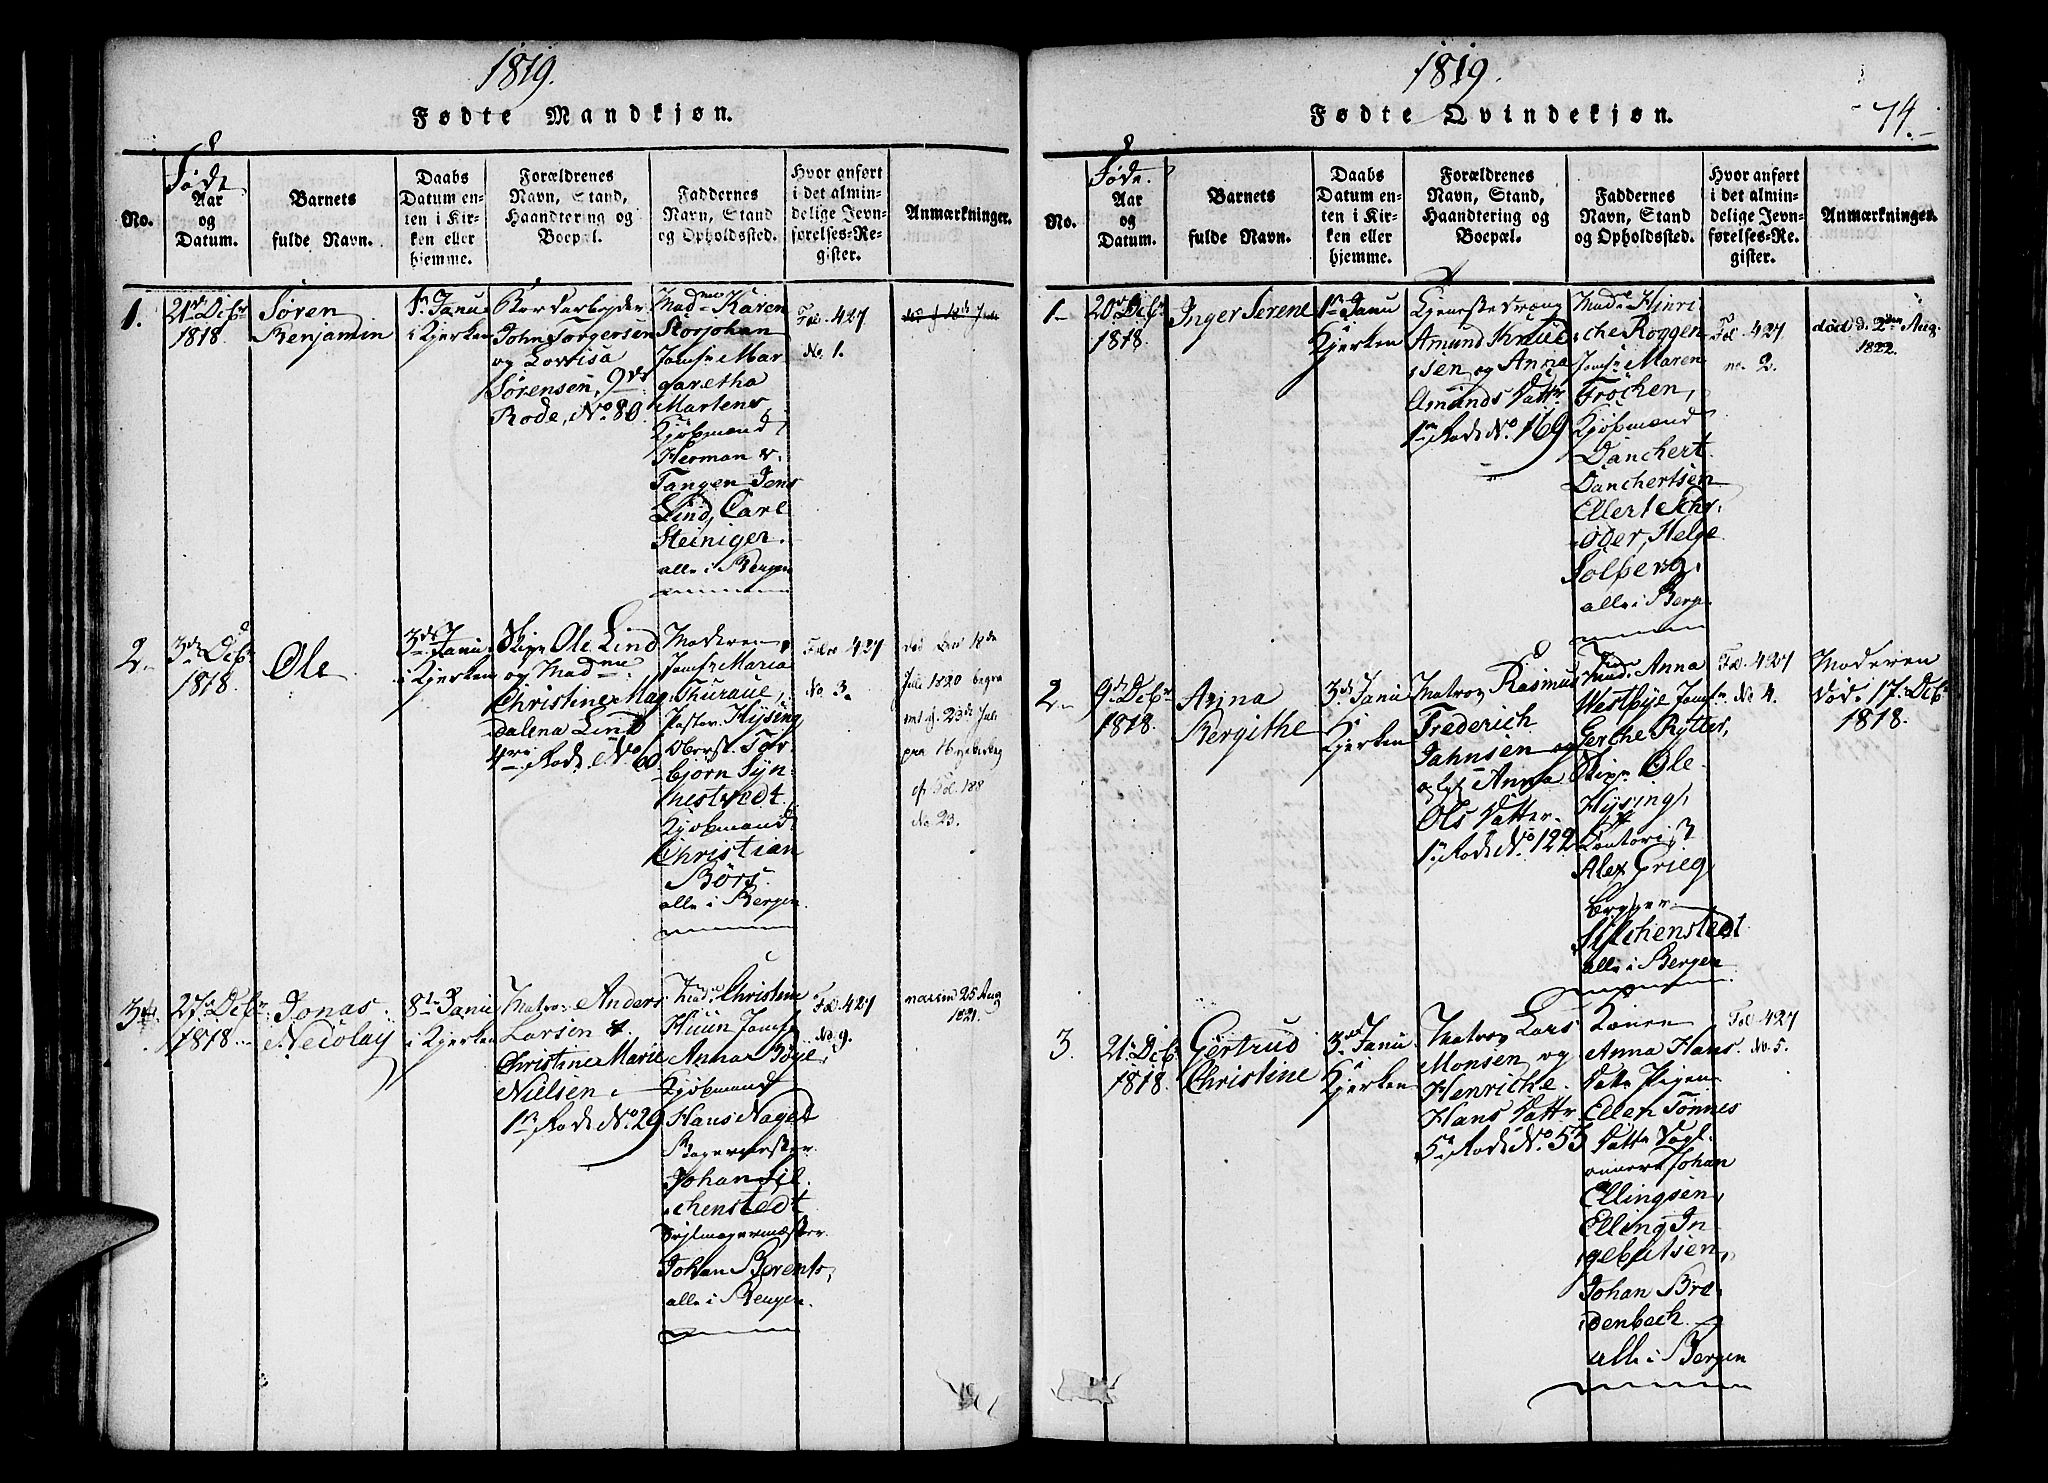 1819.
Fødte Mandkjøn.
No.
Føde
Aar
og
Datum.
Barnets
fulde Navn.
Daabs
Datum en-
ten i Kir-
ken eller
hjemme.
Forældrenes
Navn, Stand,
Haandtering og
Boepæl.
Faddernes
Navn, Stand
og Opholdssted.
Hvor anført
i det almin-
delige Jevn-
førelses-Re-
gister.
Anmærkninger.
1.
21 Decbr
1818.
Søren
Benjamin
1 Janu
i Kjerken
John Torgersen
og Lovisa
Sörensen, 9de
Rode, No. 80
Madme Karen
Storjohan
Jomfr Mar
garetha
Martens
Kjöbmænd
Herman v.
Tangen Jens
Lind, Carl
Steiniger.
alle i Bergen
Fol. 427
No. 1.
2.
3de Decbr
1818.
Ole
3de Janu
i Kjerken
Skipr Ole Lind
og Madme
Christine Mag
dalena Lind
4de Rode No. 60
Moderen,
Jomfr Maria
Thuraue,
Pastor Hysing
Oberst. Tor
björn Syn-
nestvedt
Kjöbmand
Christian
Börs.
alle i Bergen
Fol. 427
No. 3.
død den 18de
Juli 1820 begra
vet d. 23de Juli
cf. Fol. 188
No. 23.
3.
27 Decbr
1818.
Jonas
Nicolay
8de Janu
i Kjerken
Matros Anders
Larsen &
Christine Marie
Nielsen.
1ste Rode No. 29
Mad. Christine
Huun Jomfr
Anna Böge,
Kjöbmænd
Hans Nagel
Bagermester
Johan Sil
chenstedt
Seglmagermester
Johan Berents,
alle i Bergen.
Fol. 427
No. 9.
vaccin 25 Aug
1821.
1819.
Fødte Qvindekjøn.
74.
No.
Føde
Aar
og
Datum.
Barnets
fulde Navn.
Daabs
Datum en-
ten i Kir-
ken eller
hjemme.
Forældrenes
Navn, Stand,
Haandtering og
Boepæl.
Faddernes
Navn, Stand
og Opholdssted.
Hvor anført
i det almin-
delige Jevn-
førelses-Re-
gister.
Anmærkninger.
1.
20 Decbr
1818.
Inger Serene
1 Janu
i
Kjerken
Tjenestedreng
Amund Knud
sen og Anna
Amunds Datter
1ste Rode No. 169
Made Hinri
che Roggen
Jomfr Maren
Fröchen,
Kjöbmænd
Danchert
Danchertsen
Ellert Schr
öder, Helge
Solberg,
alle i Berge.
Fol. 427
no. 2.
død d. 2den Aug.
1822.
2.
9de Decbr
1818.
Anna
Bergithe
3de Janu
i
Kjerken
Matros Rasmus
Frederich
Jahnsen og
Anna
Ols Datter
1ste Rode No. 122
Mad. Anna
Westbye Jomfr
Gerche Rytter,
Skipr Ole
Hysing,
Kontorist
Alex Grieg
Bager
Silchenstedt
alle i Bergen
Fol. 427
No 4.
Moderen
død. 17. Decbr
1818.
3.
21 Decbr
1818.
Gertrud
Christine
3de Janu.
i
Kjerken
Matros Lars
Monsen og
Henriche
Hans Dattr
5te Rode No. 55
Konen
Anna Hans
Datr Pigen
Ellen Tönnes
Datr
Johan
Ellingsen,
Elling In-
gebretsen,
Johan Bre
denbech
alle i Bergen
Fol. 427
No. 5.